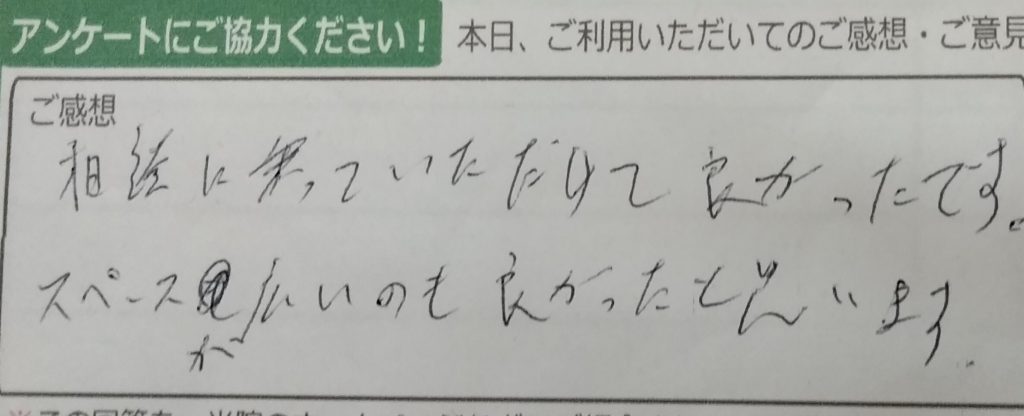 アンケートにご協力ください！ 本日、ご利用いただいてのご感想・ご意見
ご感想
相談に乗っていただけて良かったです。
スペースが広いのも良かったと思います。